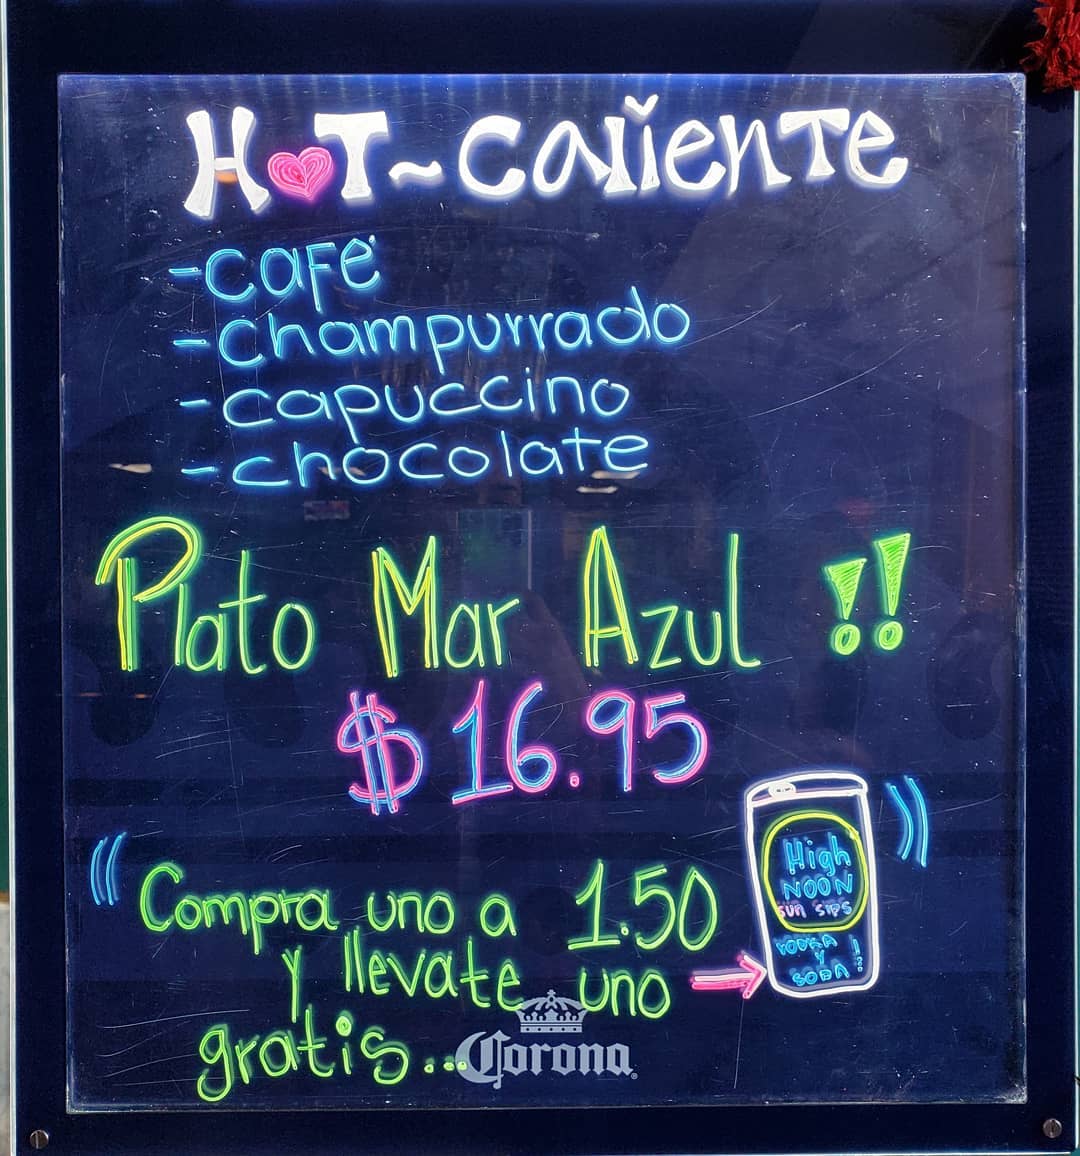 HOT~CALIENTE
-CAFÉ
-Champurrado
-capuccino
-chocolate
Plato Mar Azul !!
$16.95
Compra uno a 1.50
y llevate uno
gratis...
High
NOON
SUN SIPS
VODKA
Y
SODA!
Corona